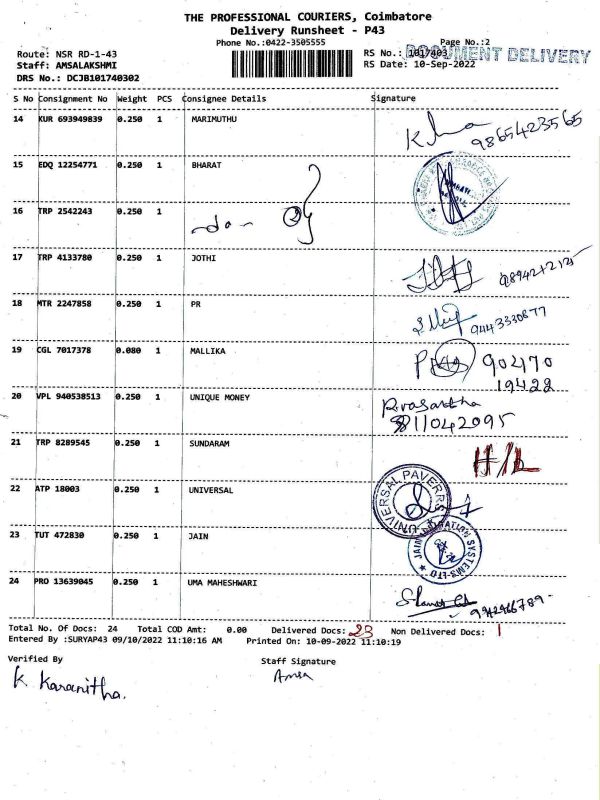 THE PROFESSIONAL COURIERS, Coimbatore
Delivery Runsheet - P43
Phone No.:0422-3505555
Page No.:2
Route: NSR RD-1-43
RS No.: 1017403
DOCUMENT DELIVERY
Staff: AMSALAKSHMI
RS Date: 10-Sep-2022
DRS No.: DCJB101740302
S No Consignment No Weight PCS Consignee Details Signature
14 KUR 693949839 0.250 1 MARIMUTHU
9865423565
15 EDQ 12254771 0.250 1 BHARAT
16 TRP 2542243 0.250 1
-do-
17 TRP 4133780 0.250 1 JOTHI
18 MTR 2247858 0.250 1 PR
9443330677
19 CGL 7017378 0.080 1 MALLIKA
90470
19422
20 VPL 940538513 0.250 1 UNIQUE MONEY
Prasantha
811042095
21 TRP 8289545 0.250 1 SUNDARAM
22 ATP 18003 0.250 1 UNIVERSAL
UNIVERSAL PAVERRS
23 TUT 472830 0.250 1 JAIN
JAIN IRRIGATION SYSTEMS LTD
24 PRO 13639045 0.250 1 UMA MAHESHWARI
Total No. Of Docs: 24 Total COD Amt: 0.00 Delivered Docs: 23 Non Delivered Docs: 1
Entered By :SURYAP43 09/10/2022 11:10:16 AM Printed On: 10-09-2022 11:10:19
Verified By
Staff Signature
K. Karanitha.
Amsa